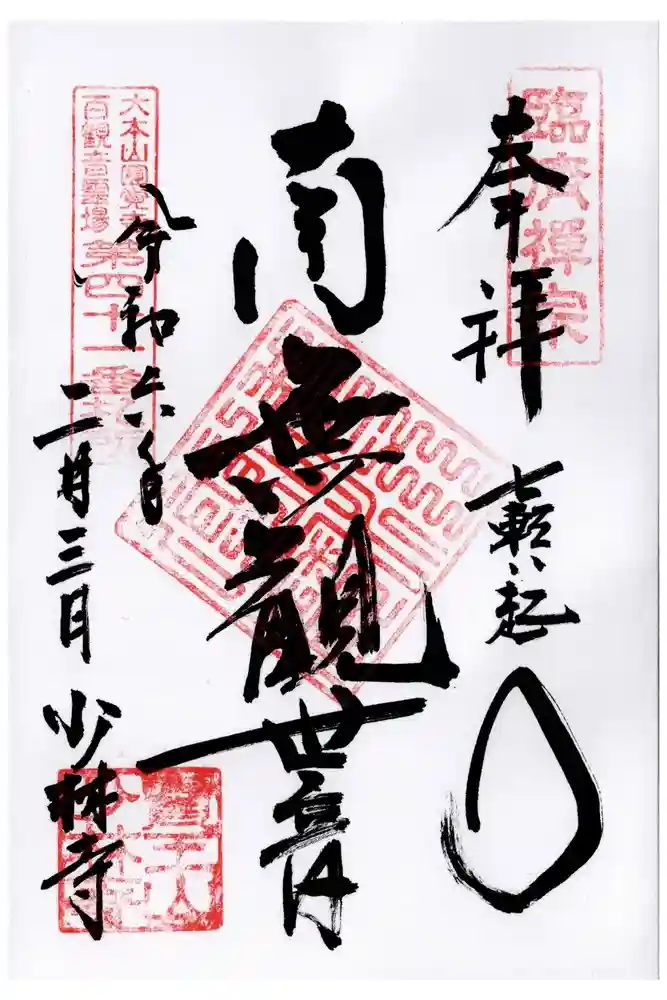 奉拝
臨済禅宗
七転八起
南無観世音
大本山圓覚寺
百観音霊場
第四十一番札所
令和六年
二月三日
少林寺